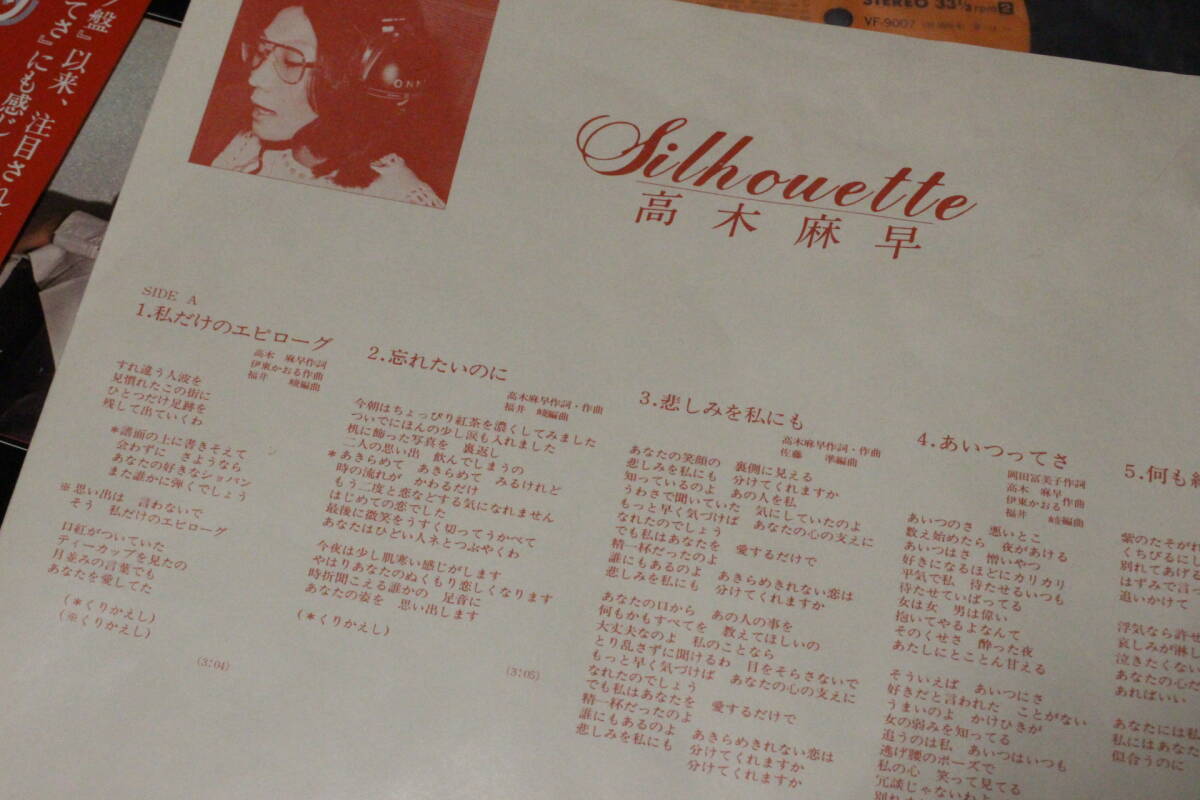 盤』以来、注目され
てさ』にも感じ
STEREO 33 1/3 rpm 2
VF-9007
Silhouette
高木麻早
SIDE A
1.私だけのエピローグ
高木 麻早作詞
伊東かおる作曲
福井 崚編曲
すれ違う人波を
見慣れたこの街に
ひとつだけ足跡を
残して出ていくわ
*譜面の上に書きそえて
会わずに さようなら
あなたの好きなショパン
また誰かに弾くでしょう
※思い出は 言わないで
そう 私だけのエピローグ
口紅がついていた
ティーカップを見たの
月並みの言葉でも
あなたを愛してた
(*くりかえし)
(※くりかえし)
(3:04)
2.忘れたいのに
高木麻早作詞・作曲
福井 崚編曲
今朝はちょっぴり紅茶を濃くしてみました
ついでにほんの少し涙も入れました
机に飾った写真を 裏返し
二人の思い出 飲んでしまうの
*あきらめて あきらめて みるけれど
時の流れが かわるだけ
もう二度と恋などする気になれません
はじめての恋でした
最後に微笑をうすく切ってうかべて
あなたはひどい人ネとつぶやくわ
今夜は少し肌寒い感じがします
やはりあなたのぬくもり恋しくなります
時折聞こえる誰かの 足音に
あなたの姿を 思い出します
(*くりかえし)
(3:05)
3.悲しみを私にも
高木麻早作詞・作曲
佐藤 準編曲
あなたの笑顔の 裏側に見える
悲しみを私にも 分けてくれますか
知っているのよ あの人を私
うわさで聞いていた 気にしていたのよ
もっと早く気づけば あなたの心の支えに
なれたのでしょう
でも私はあなたを 愛するだけで
精一杯だったのよ
誰にもあるのよ あきらめきれない恋は
悲しみを私にも 分けてくれますか
あなたの口から あの人の事を
何もかもすべてを 教えてほしいの
大丈夫なのよ 私のことなら
とり乱さずに聞けるわ 目をそらさないで
もっと早く気づけば あなたの心の支えに
なれたのでしょう
でも私はあなたを 愛するだけで
精一杯だったのよ
誰にもあるのよ あきらめきれない恋は
悲しみを私にも 分けてくれますか
分けてくれますか
4.あいつってさ
岡田冨美子作詞
高木 麻早
伊東かおる作曲
福井 崚編曲
あいつのさ 悪いとこ
教え始めたら 夜があける
あいつはさ 憎いやつ
好きになるほどにカリカリ
平気で私 待たせるいつも
待たせていばってる
女は女 男は偉い
抱いてやるよなんて
そのくせさ 酔った夜
あたしにとことん甘える
そういえば あいつにさ
好きだと言われた ことがない
うまいのよ かけひきが
女の弱みを知ってる
追うのは私 あいつはいつも
逃げ腰のポーズで
私の心 笑って見てる
冗談じゃないわよ
5.何も
紫のたそがれ
くちびるにし
別れてあげる
はずみで言っ
追いかけて
浮気なら許せ
哀しみが淋し
泣きたくない
あなたの心だ
あればいい
あなたには私
私にはあなた
似合うのに